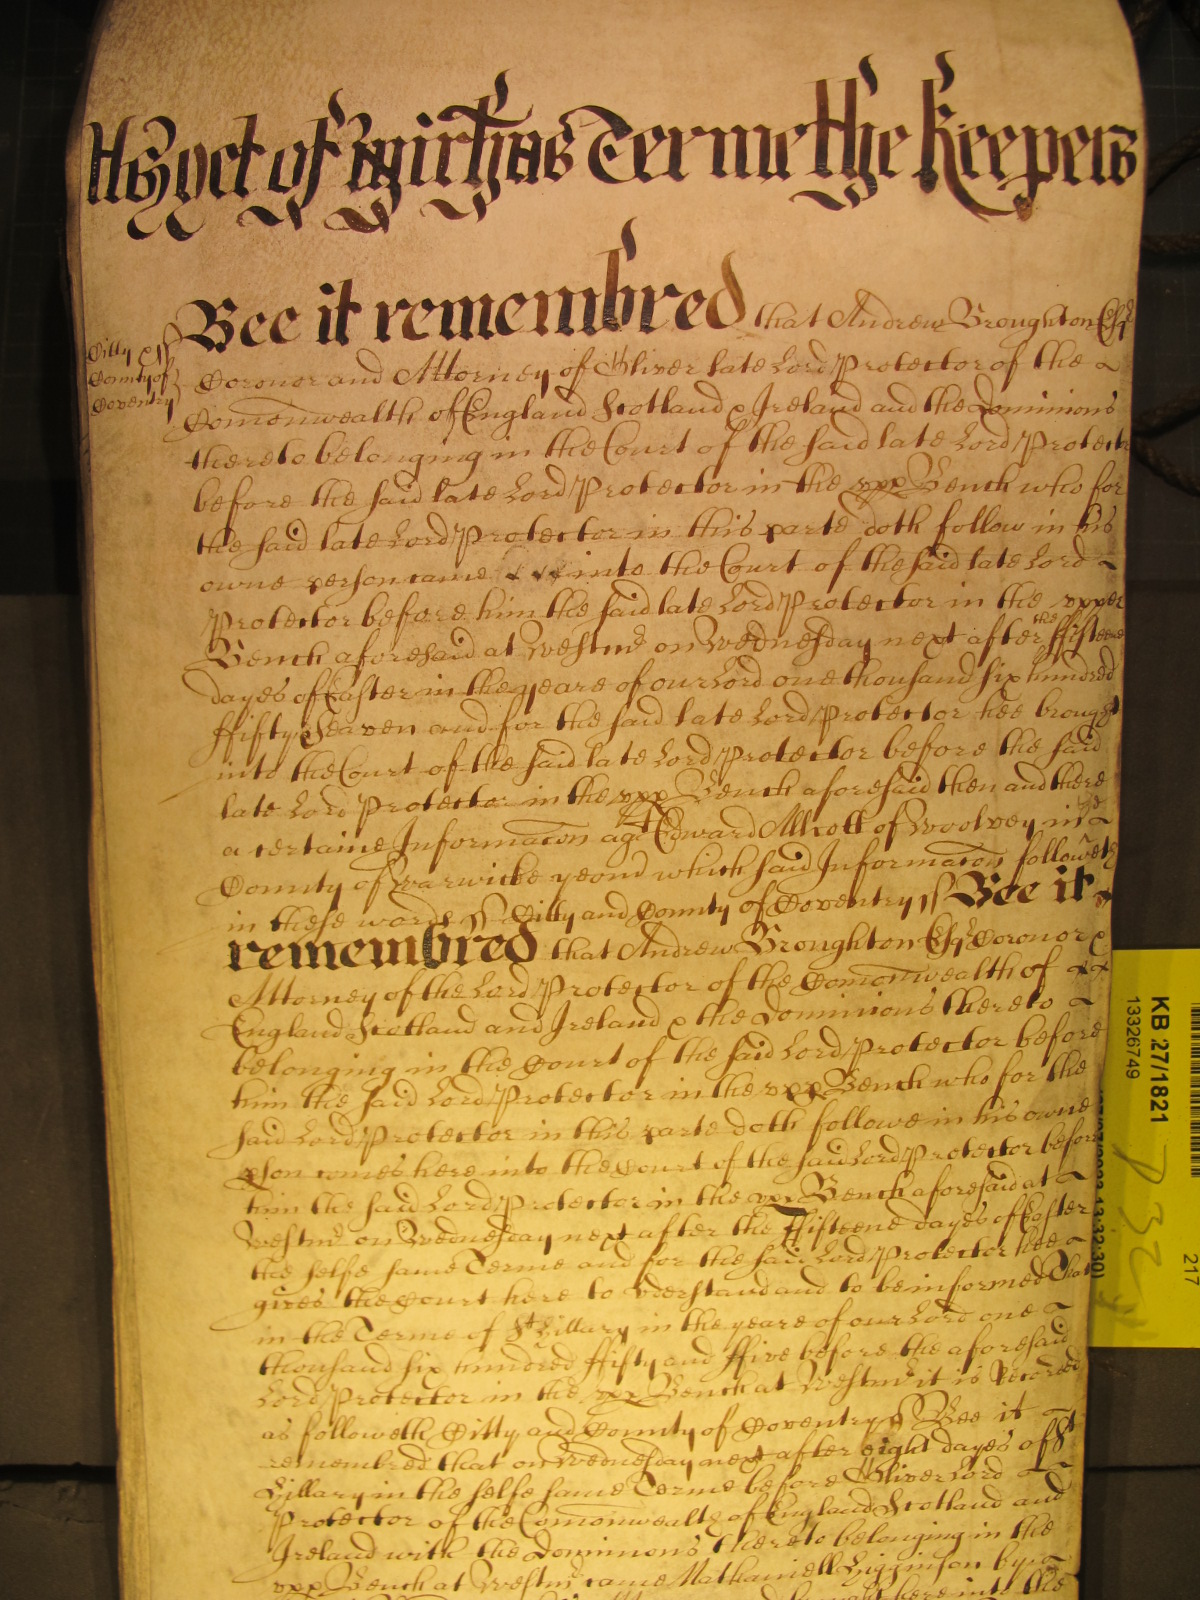 As yet of Michas Terme the Keepers
Bee it remembred that Andrew Broughton Esqr
Citty &
County of
Coventry
Coronor and Attorney of Oliver late Lord Protector of the
Comonwealth of England Scotland & Ireland and the Dominions
thereto belonging in the Court of the said late Lord Protector
before the said late Lord Protector in the upp Bench who for
the said late Lord Protector in this parte doth follow in his
owne person came into the Court of the said late Lord
Protector before him the said late Lord Protector in the upper
Bench aforesaid at Westmr on Wednesday next after the ffifteene
dayes of Easter in the yeare of our Lord one thousand six hundred
ffifty Seaven and for the said late Lord Protector hee brought
into the Court of the said late Lord Protector before the said
late Lord Protector in the upp Bench aforesaid then and there
a certaine Informacon agt Edward Allcott of Woolvey in the
County of Warwicke yeom which said Informacon followeth
in these words ss Citty and County of Coventry ss Bee it
remembred that Andrew Broughton Esqr Coronor &
Attorney of the Lord Protector of the Comonwealth of
England Scotland and Ireland & the Dominions thereto
belonging in the Court of the said Lord Protector before
him the said Lord Protector in the upp Bench who for the
said Lord Protector in this parte doth followe in his owne
pson comes here into the Court of the said Lord Protector before
him the said Lord Protector in the upp Bench aforesaid at
Westmr on Wednesday next after the ffifteene dayes of Easter
the selfe same Terme and for the said Lord Protector hee
gives the Court here to vderstand and to be informed That
in the Terme of St Hillary in the yeare of our Lord one
thousand six hundred ffifty and ffive before the aforesaid
Lord Protector in the upp Bench at Westmr it is Recorded
as followeth Citty and County of Coventry ss Bee it
remembred that on Wednesday next after eight dayes of St
Hillary in the selfe same Terme before Oliver Lord
Protector of the Comonwealth of England Scotland and
Ireland with the Dominions thereto belonging in the
upp Bench at Westmr came Nathaniell Higginson by
here into the
KB 27/1821
13326749
217